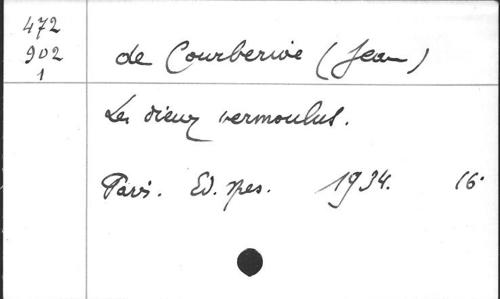 472
902
1
de Courberive (Jean)
Les dieux vermoulus.
Paris. Ed. 1934. 16°